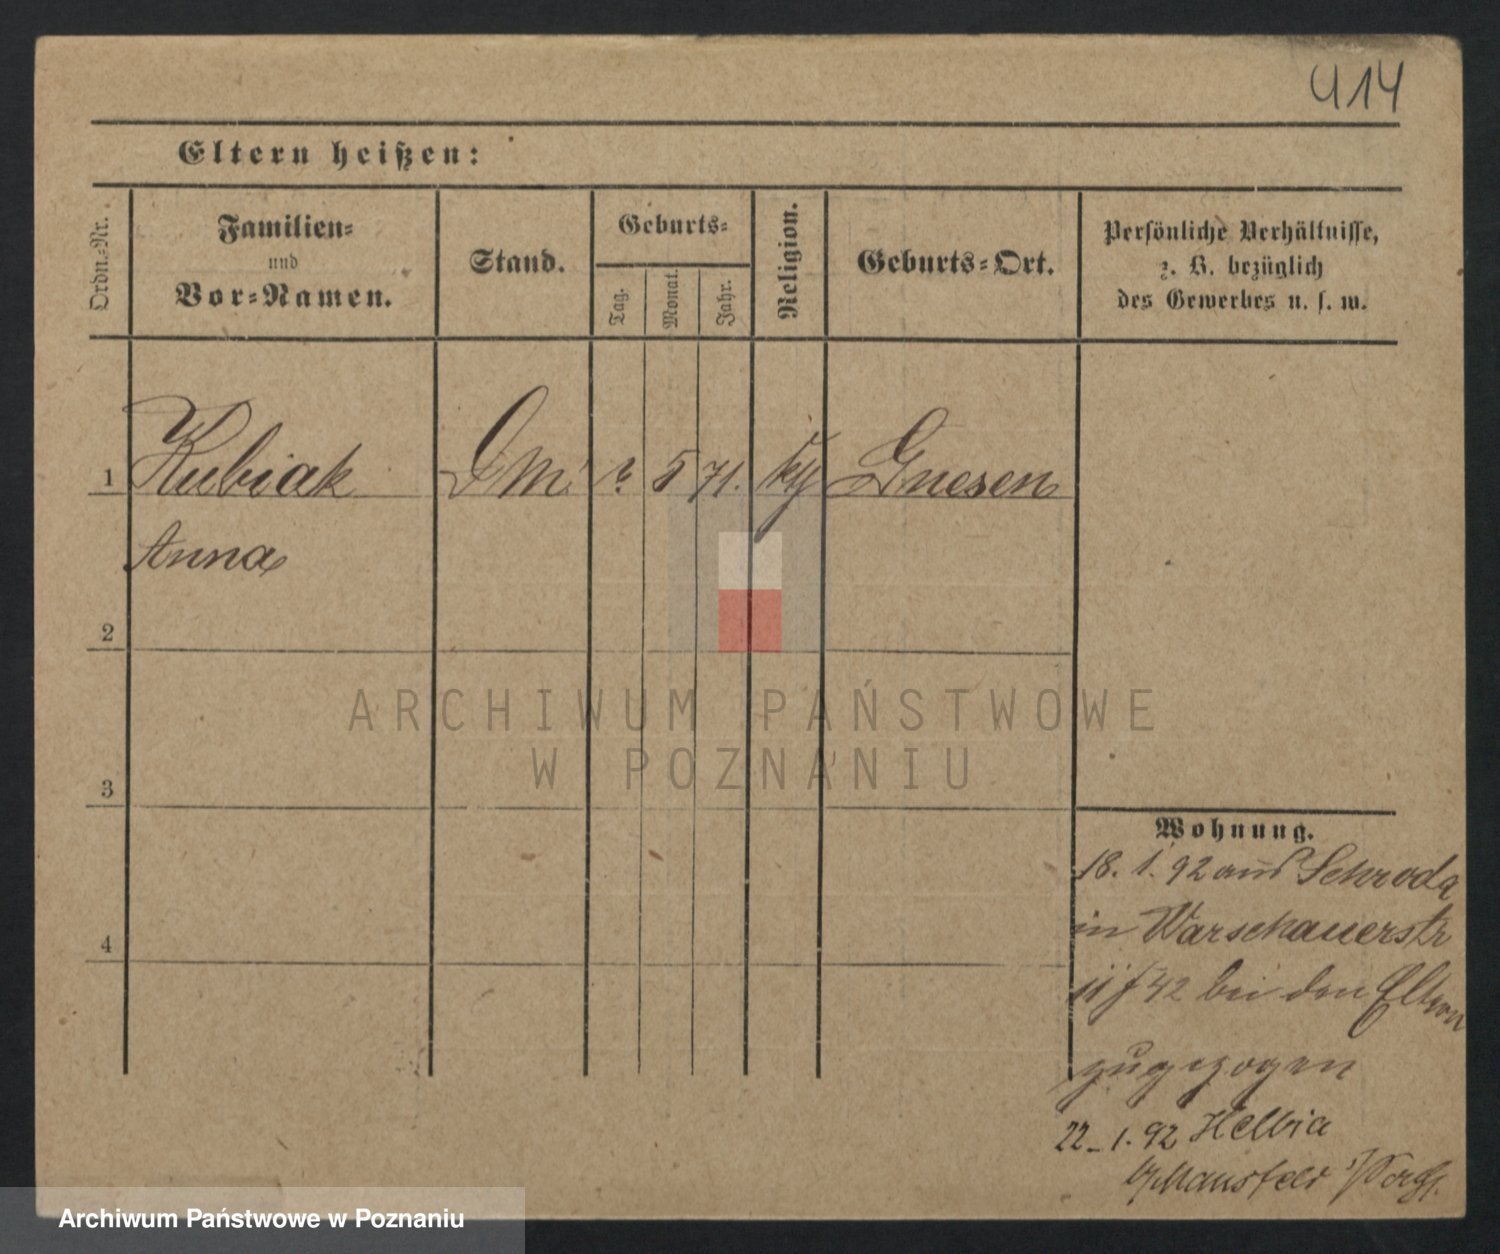 414
Eltern heißen:
Ordn.-Nr.
Familien-
und
Vor-Namen.
Stand.
Geburts-
Tag.
Monat.
Jahr.
Religion.
Geburts-Ort.
Persönliche Verhältnisse,
z. B. bezüglich
des Gewerbes u. s. w.
1 Kubiak DM. 5 71. Gnesen
Anna
2
ARCHIWUM PAŃSTWOWE
W POZNANIU
3
4
Wohnung.
18. 1. 92 aus Schroda
in Warschauerstr
42 bei den Eltern
zugezogen
22. 1. 92
Archiwum Państwowe w Poznaniu